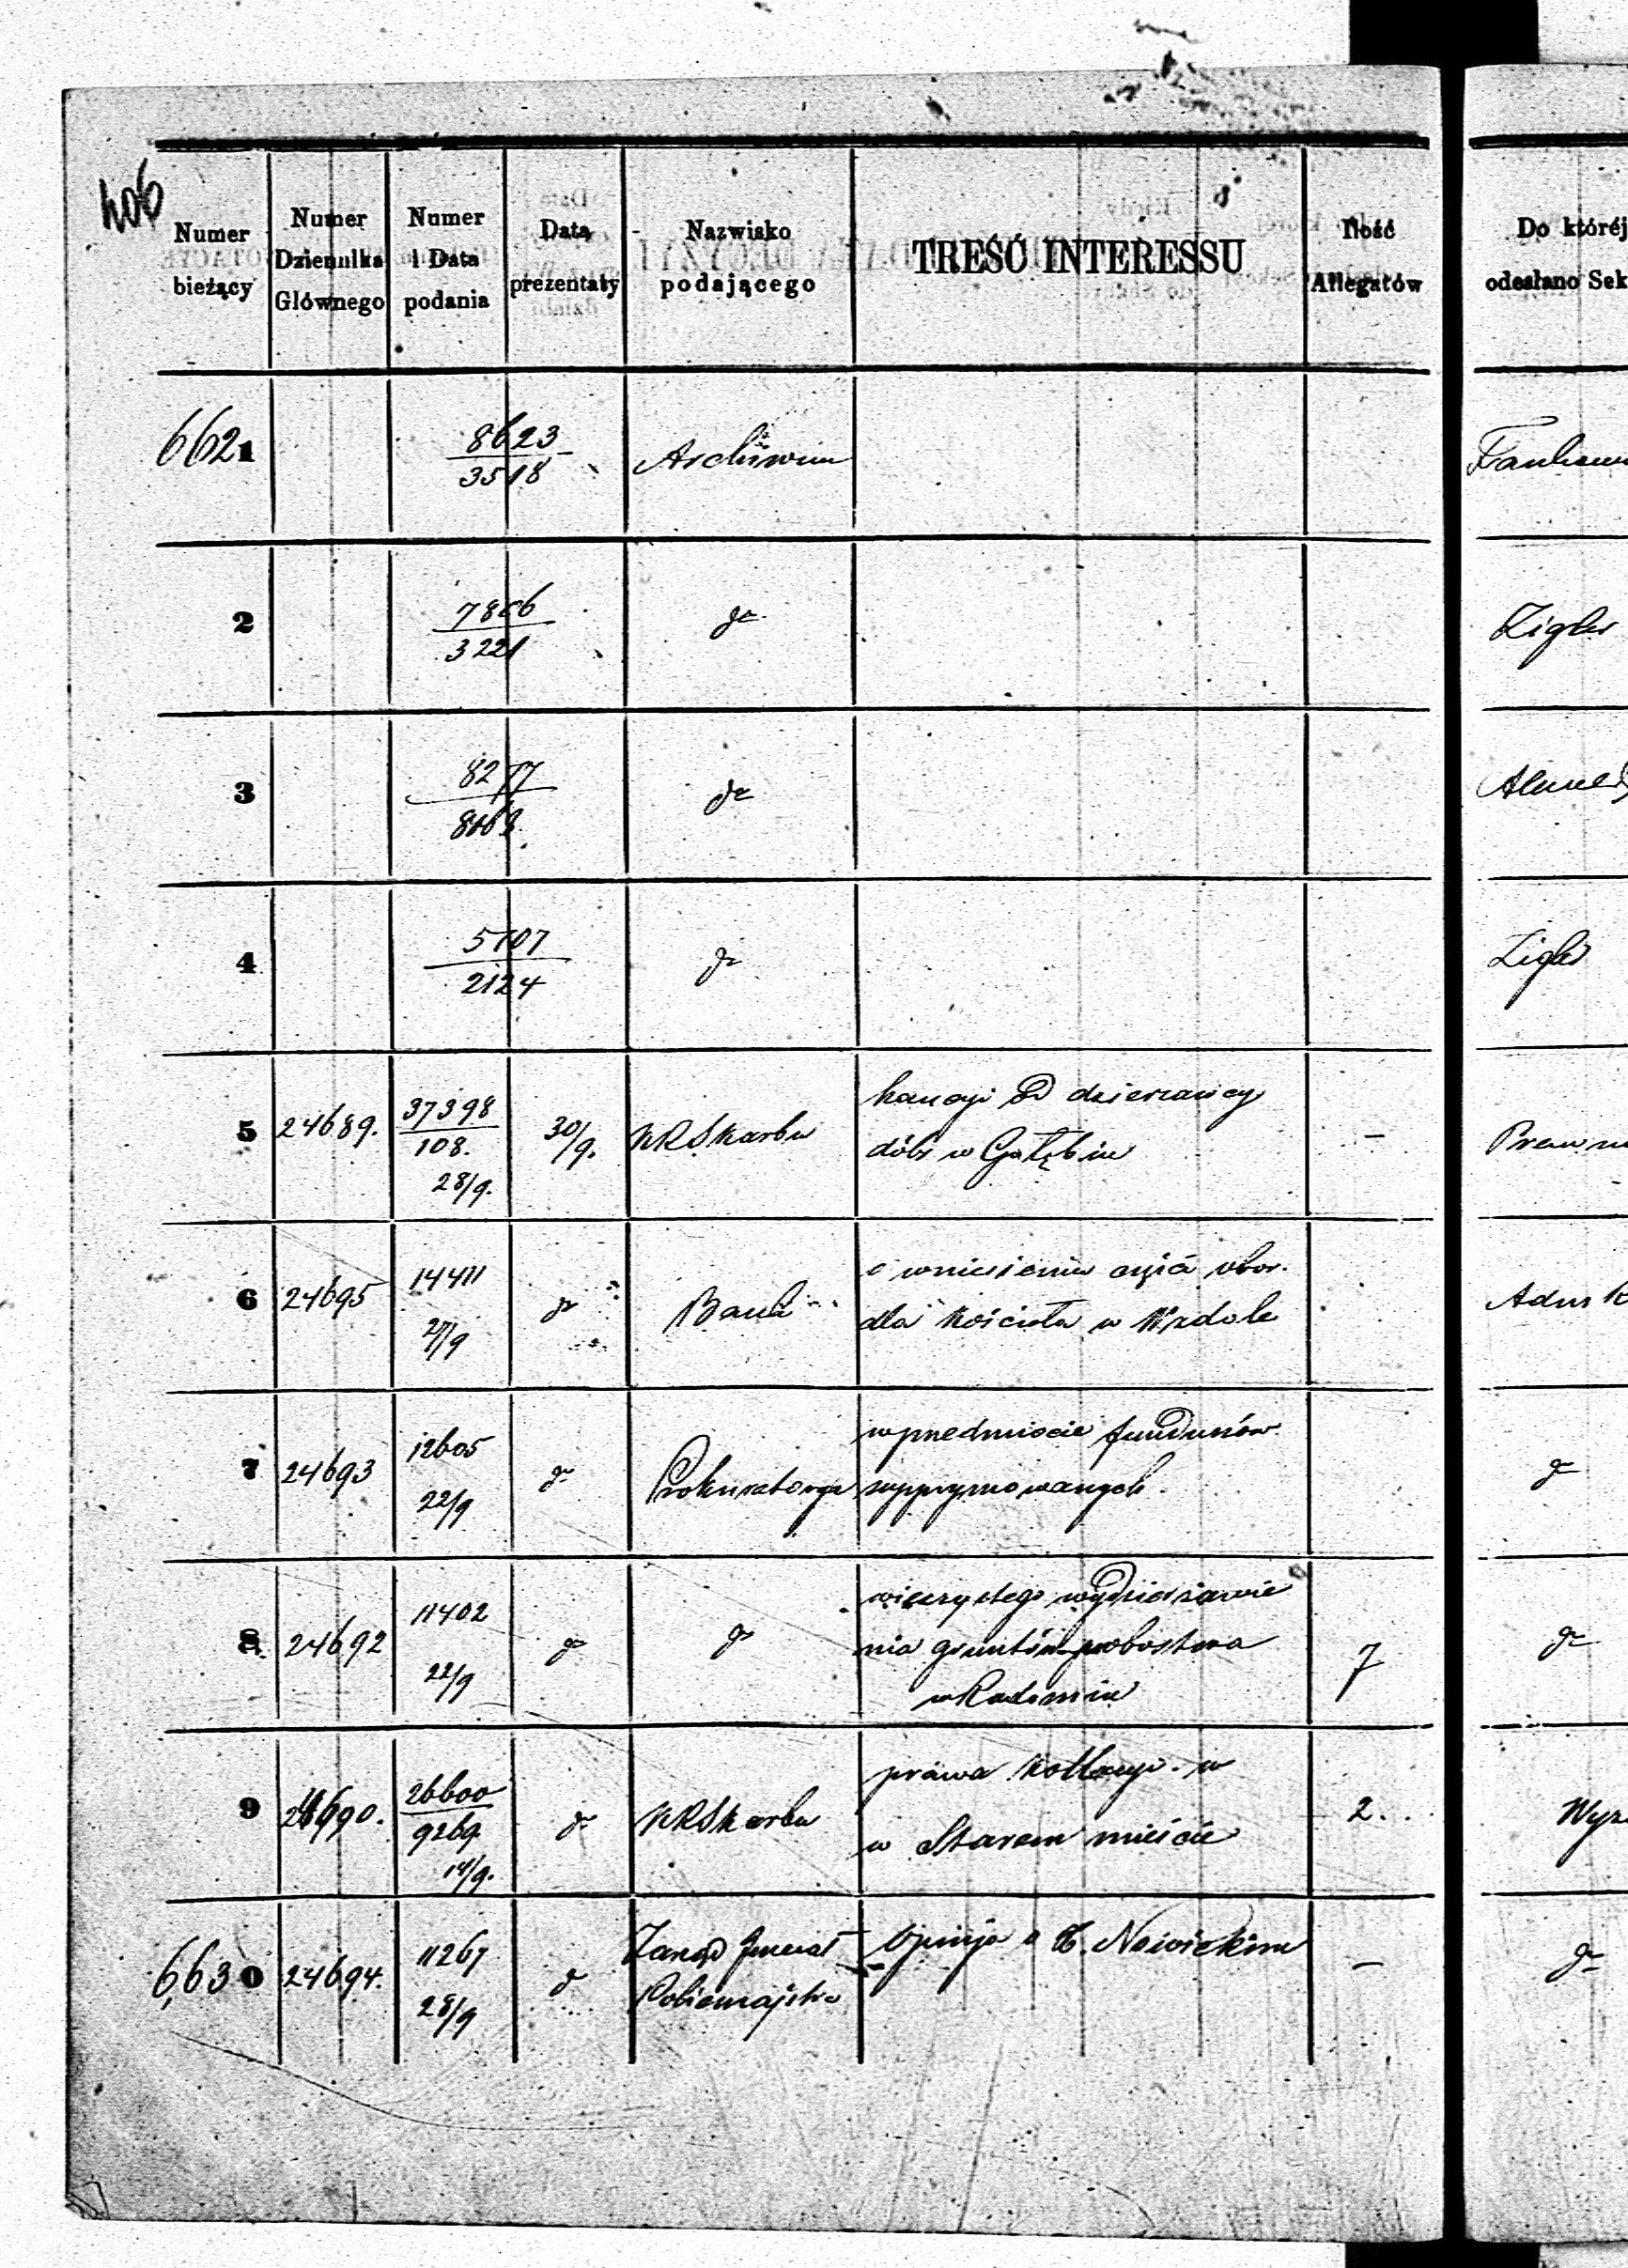 406
Numer
bieżący
Numer
Dziennika
Głównego
Numer
i Data
podania
Data
prezentaty
Nazwisko
podającego
TREŚĆ INTERESSU
Ilość
Allegatów
Do któréj
odesłano Sek
6621
8623
3518
Archiwum
2
7866
3221
do
Zigler
3
8277
do
4
5107
2124
do
Zigler
5
24689.
37398
108.
28/9.
30/9.
KRSkarbu
kaucyi od dzierzawcy
dóbr w Gołębiu
—
Prawn
6
24695
14411
27/9
do
Bank
o wniesieniu
dla Kościoła w Wzdole
7
24693
12605
22/9
do
Prokuratorya
w przedmiocie funduszów
supprymowanych
do
8
24692
11402
22/9
do
do
wieczystego wydzierżawie
nia gruntów probostwa
w Radomiu
7
do
9
24690.
26600
9269
14/9.
do
KRSkarbu
prawa Kollacyi w
w Starem mieście
2.
Wyz
6630
24694.
11267
28/9
do
Zarząd Generał
Policmajstra
Opinija o X. Nowickim
—
do